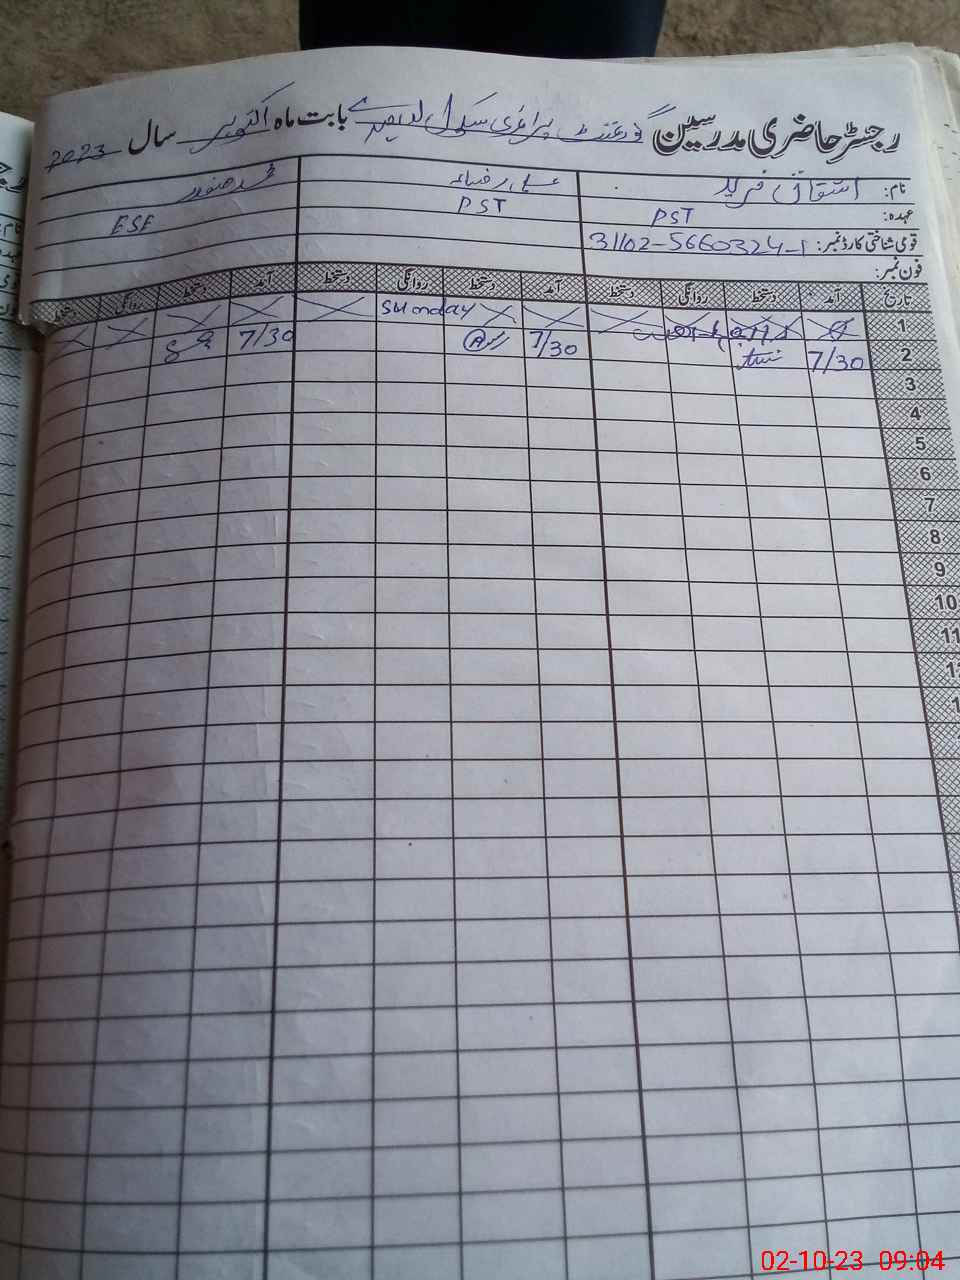 رجسٹر حاضری مدرسین گورنمنٹ پرائمری سکول بابت ماہ اکتوبر سال 2023
نام: اشتیاق فرید علی رضا محمد صفدر
عہدہ: PST PST ESE
قومی شناختی کارڈ نمبر: 31102-5660324-1
فون نمبر:
تاریخ آمد دستخط روانگی دستخط آمد دستخط روانگی دستخط آمد دستخط روانگی دستخط
1 Sunday
2 7/30 7/30 7/30
3
4
5
6
7
8
9
10
11
02-10-23 09:04